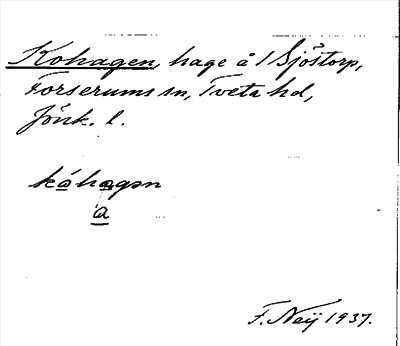 Kohagen, hage å 1 Sjöstorp,
Forserums sn, Tveta hd,
Jönk. l.
kåhagən
a
F. Neij 1937.